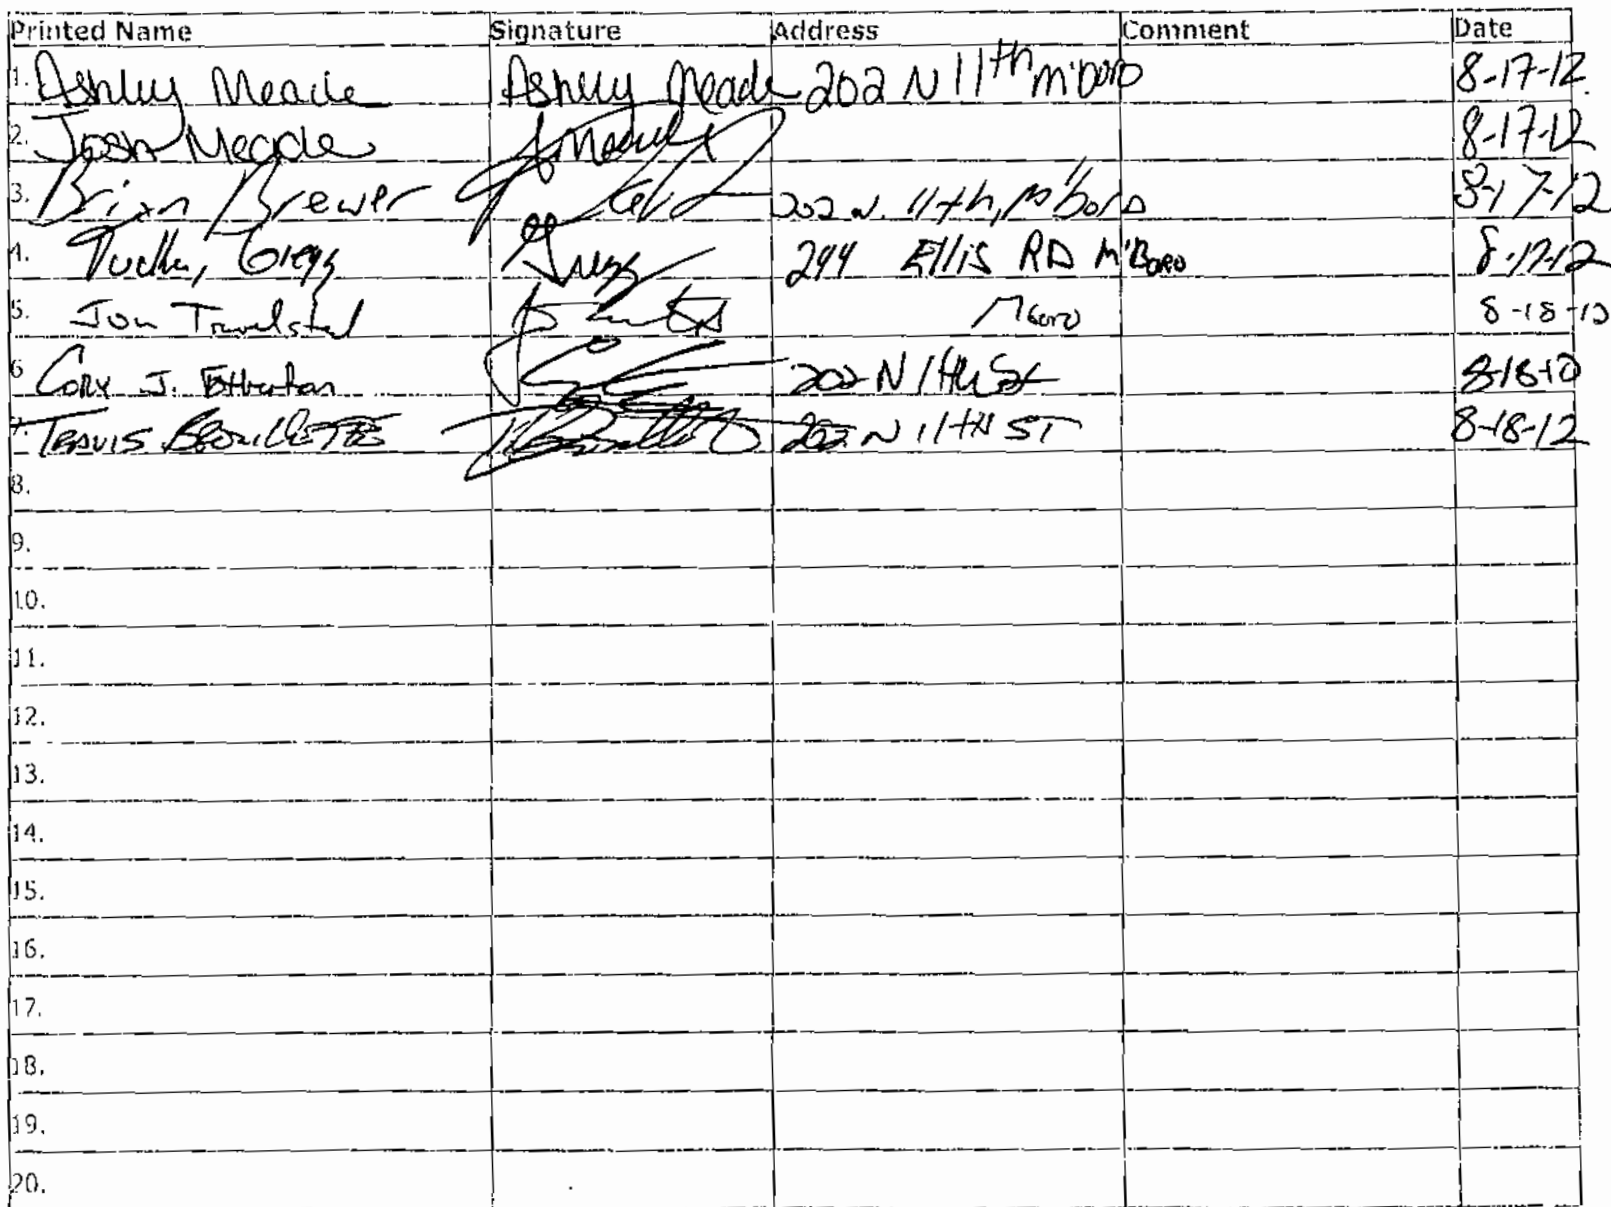 Printed Name Signature Address Comment Date
1. Ashley Meade Ashley Meade 202 N 11th M'boro 8-17-12
2. Josh Meade J Meade 8-17-12
3. Brian Brewer 202 N. 11th, M'boro 8-17-12
4. Gregg 244 Ellis RD M'Boro 8-17-12
5. Jon Travelsted Mboro 8-18-12
6. Cory J. Etherton 202 N 11th St 8-18-12
7. TRAVIS BROUILLETTE 202 N 11TH ST 8-18-12
8.
9.
10.
11.
12.
13.
14.
15.
16.
17.
18.
19.
20.